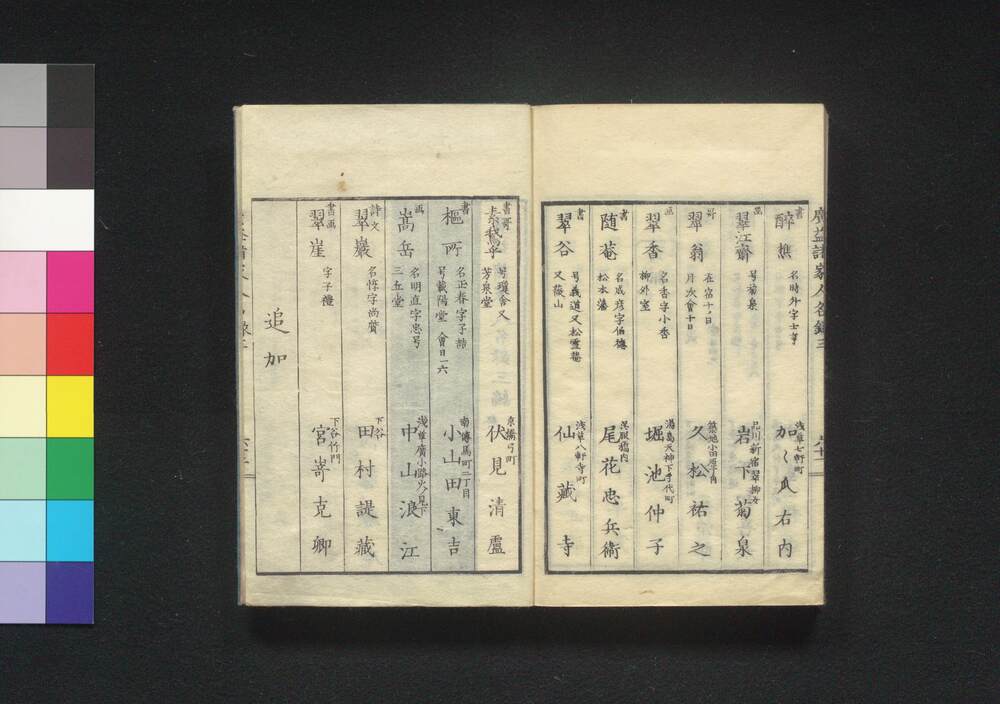 廣益諸家人名録三
書
醉樵
名時外字士
浅草七軒町
加々爪右内
画
翠江齋
号菊泉
品川新宿翠柳女
岩下菊泉
哥
翠翁
在宿十ノ日
月次會十日
築地小田原町内
久松祐之
画
翠香
名香字小香
柳外室
湯島天神下手代町
堀池仲子
書
随菴
名成彦字伯德
松本藩
呉服橋内
尾花忠兵衛
書
翠谷
号義道又松靈
又薇山
浅草八軒寺町
仙藏寺
書哥
号瓊舎又
芳泉堂
京橋弓町
伏見清盧
書
樞所
名正春字子
号載陽堂 會日一六
南傳馬町二丁目
小山田東吉
画
嵩岳
名明直字忠号
三五堂
浅草廣小路火ノ見下
中山浪江
詩文
翠巖
名惇字尚質
下谷
田村諟藏
書画
翠崖
字子
下谷竹門
宮嵜克卿
追加